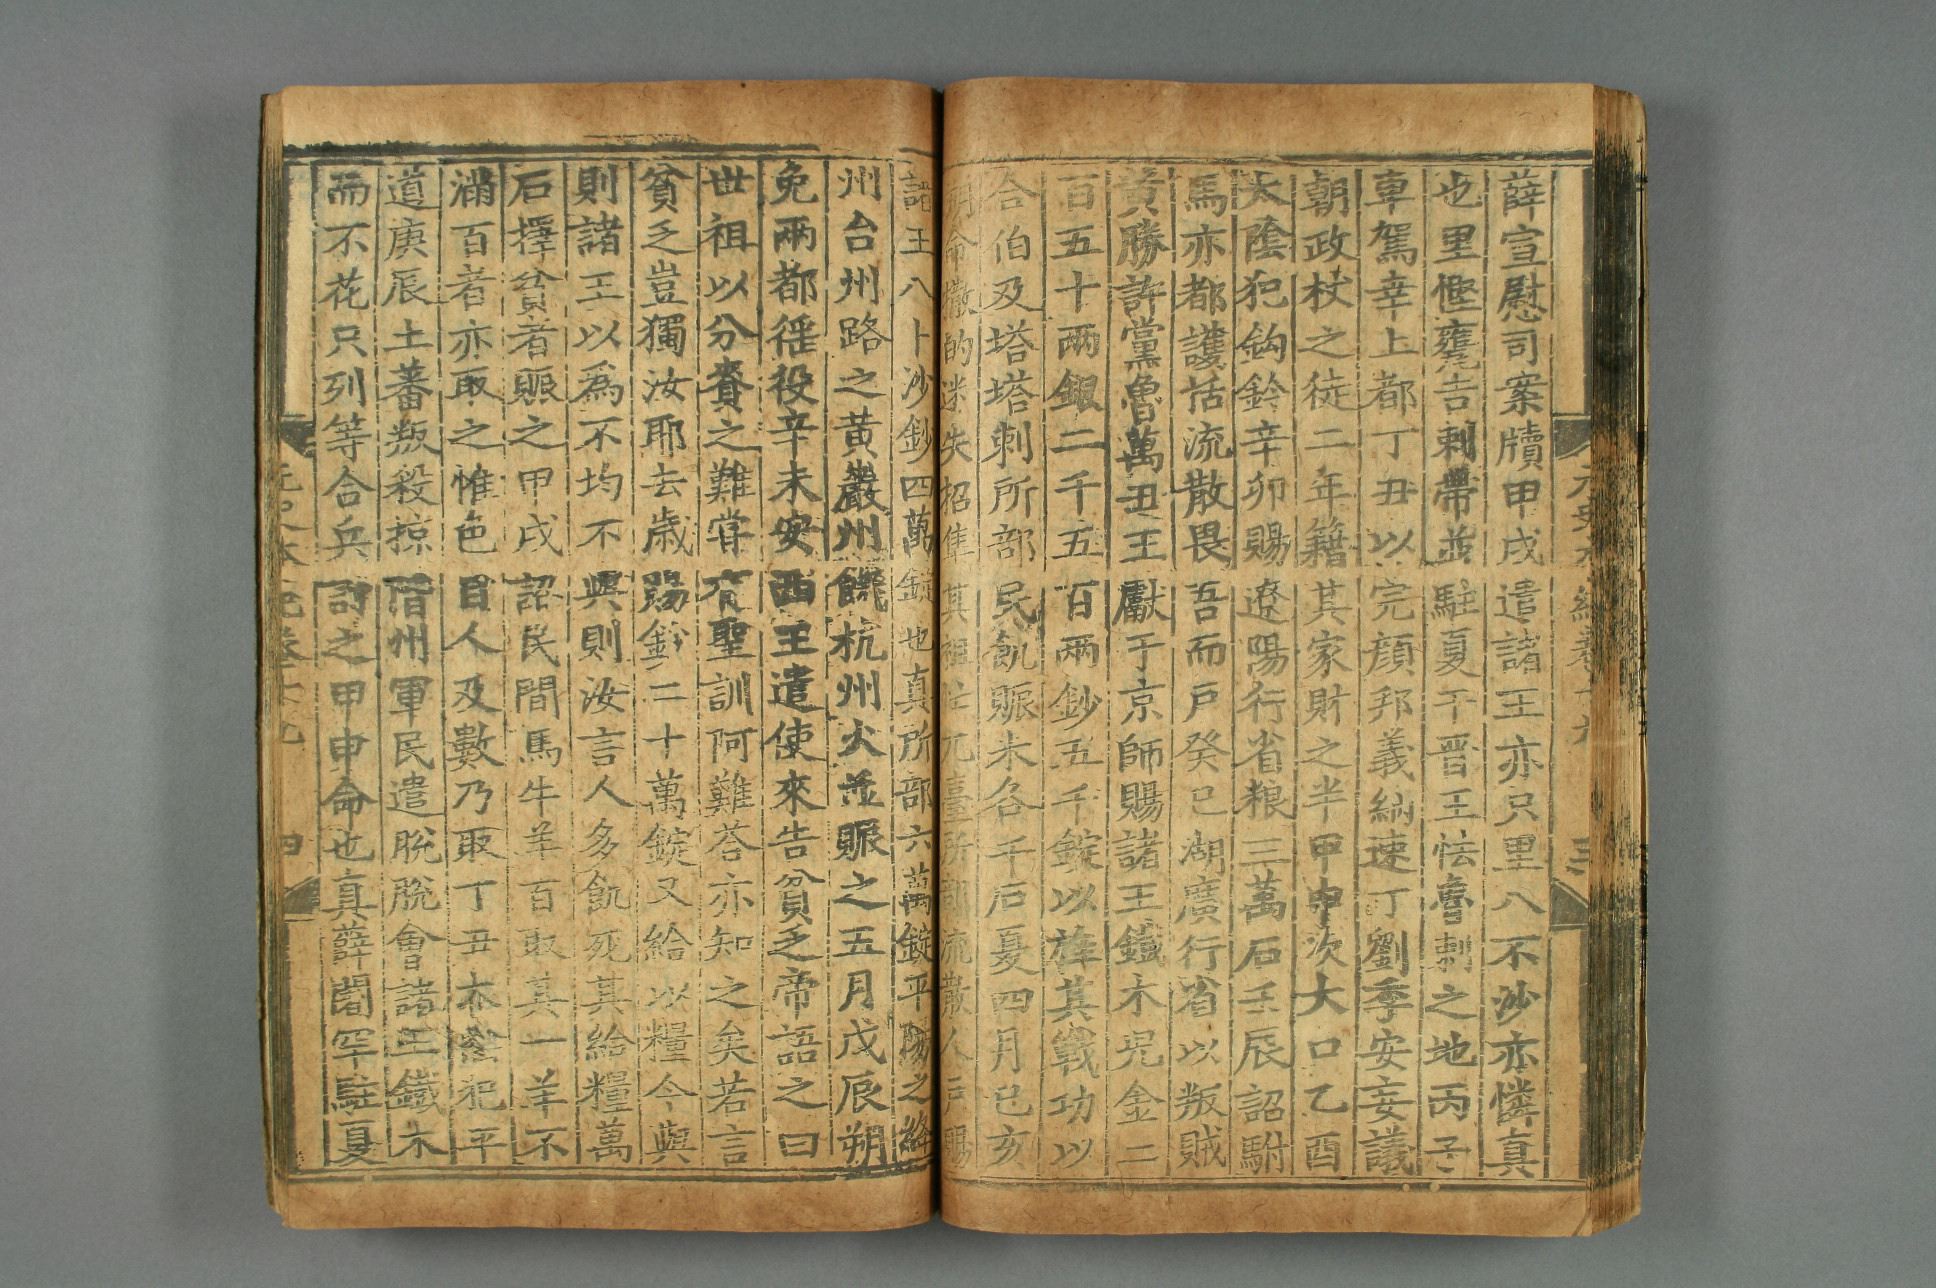 元史本紀卷十九
三
薛宣慰司案牘甲戌遣諸王亦只里八不沙亦憐真
也里慳甕吉剌帶並駐夏于晋王怯魯剌之地丙子
車駕幸上都丁丑以完顔邦義納速丁劉季安妄議
朝政杖之徒二年籍其家財之半甲申次大口乙酉
太陰犯鈎鈐辛卯賜遼陽行省粮三萬石壬辰詔駙
馬亦都護括流散畏吾而戶癸巳湖廣行省以叛賊
黄勝許黨魯萬丑王獻于京師賜諸王鐵木兒金二
百五十兩銀二千五百兩鈔五千錠以旌其戰功以
合伯及塔塔剌所部民飢賑米各千石夏四月己亥
命撒的迷失招集其祖忙兀臺所部流散人戶賜
諸王八卜沙鈔四萬錠也真所部六萬錠平陽之絳
州台州路之黄巖州饑杭州火並賑之五月戊辰朔
免兩都徭役辛未安西王遣使來告貧乏帝語之曰
世祖以分賚之難嘗有聖訓阿難荅亦知之矣若言
貧乏豈獨汝耶去歳賜鈔二十萬錠又給以糧今與
則諸王以爲不均不與則汝言人多飢死其給糧萬
石擇貧者賑之甲戌詔民間馬牛羊百取其一羊不
滿百者亦取之惟色目人及數乃取丁丑太隂犯平
道庚辰土蕃叛殺掠階州軍民遣脫脫會諸王鐵木
而不花只列等合兵討之甲申命也真薛闍罕駐夏
元史本紀卷十九
四